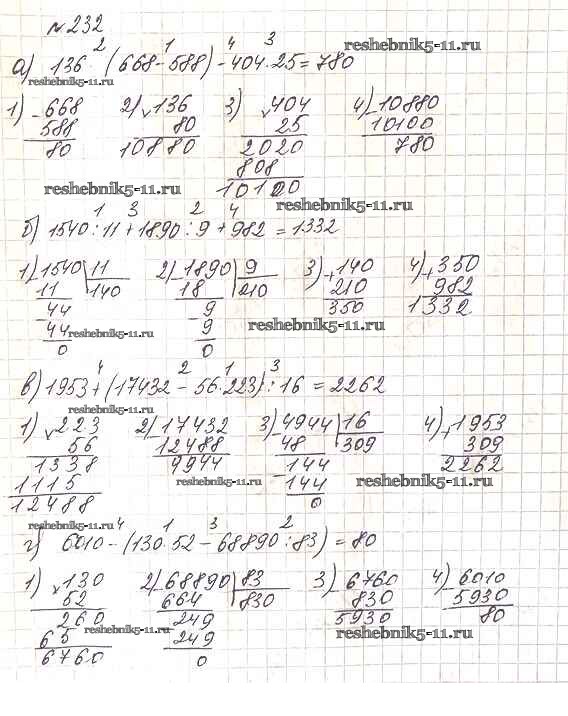 №232
2 1 4 3
reshebnik5-11.ru
а) 136 · (668 - 588) - 404 · 25 = 780
reshebnik5-11.ru
1) - 668 2) × 136 3) × 404 4) - 10880
588 80 25 10100
80 10880 2020 780
808
reshebnik5-11.ru 10100 reshebnik5-11.ru
1 3 2 4
б) 1540 : 11 + 1890 : 9 + 982 = 1332
1) - 1540 | 11 2) - 1890 | 9 3) + 140 4) + 350
11 140 18 210 210 982
- 44 - 9 350 1332
44 reshebnik5-11.ru 9 reshebnik5-11.ru
0 0
4 2 1 3
в) 1953 + (17432 - 56 · 223) : 16 = 2262
reshebnik5-11.ru
1) × 223 2) - 17432 3) - 4944 | 16 4) + 1953
56 12488 48 309 309
1338 9944 - 144 2262
1115 reshebnik5-11.ru 144 reshebnik5-11.ru
12488 0
reshebnik5-11.ru 4 1 3 2
г) 6010 - (130 · 52 - 68890 : 83) = 80
1) × 130 2) - 68890 | 83 3) - 6760 4) - 6010
52 664 830 830 5930
260 - 249 5930 80
65 reshebnik5-11.ru 249 reshebnik5-11.ru
6760 0